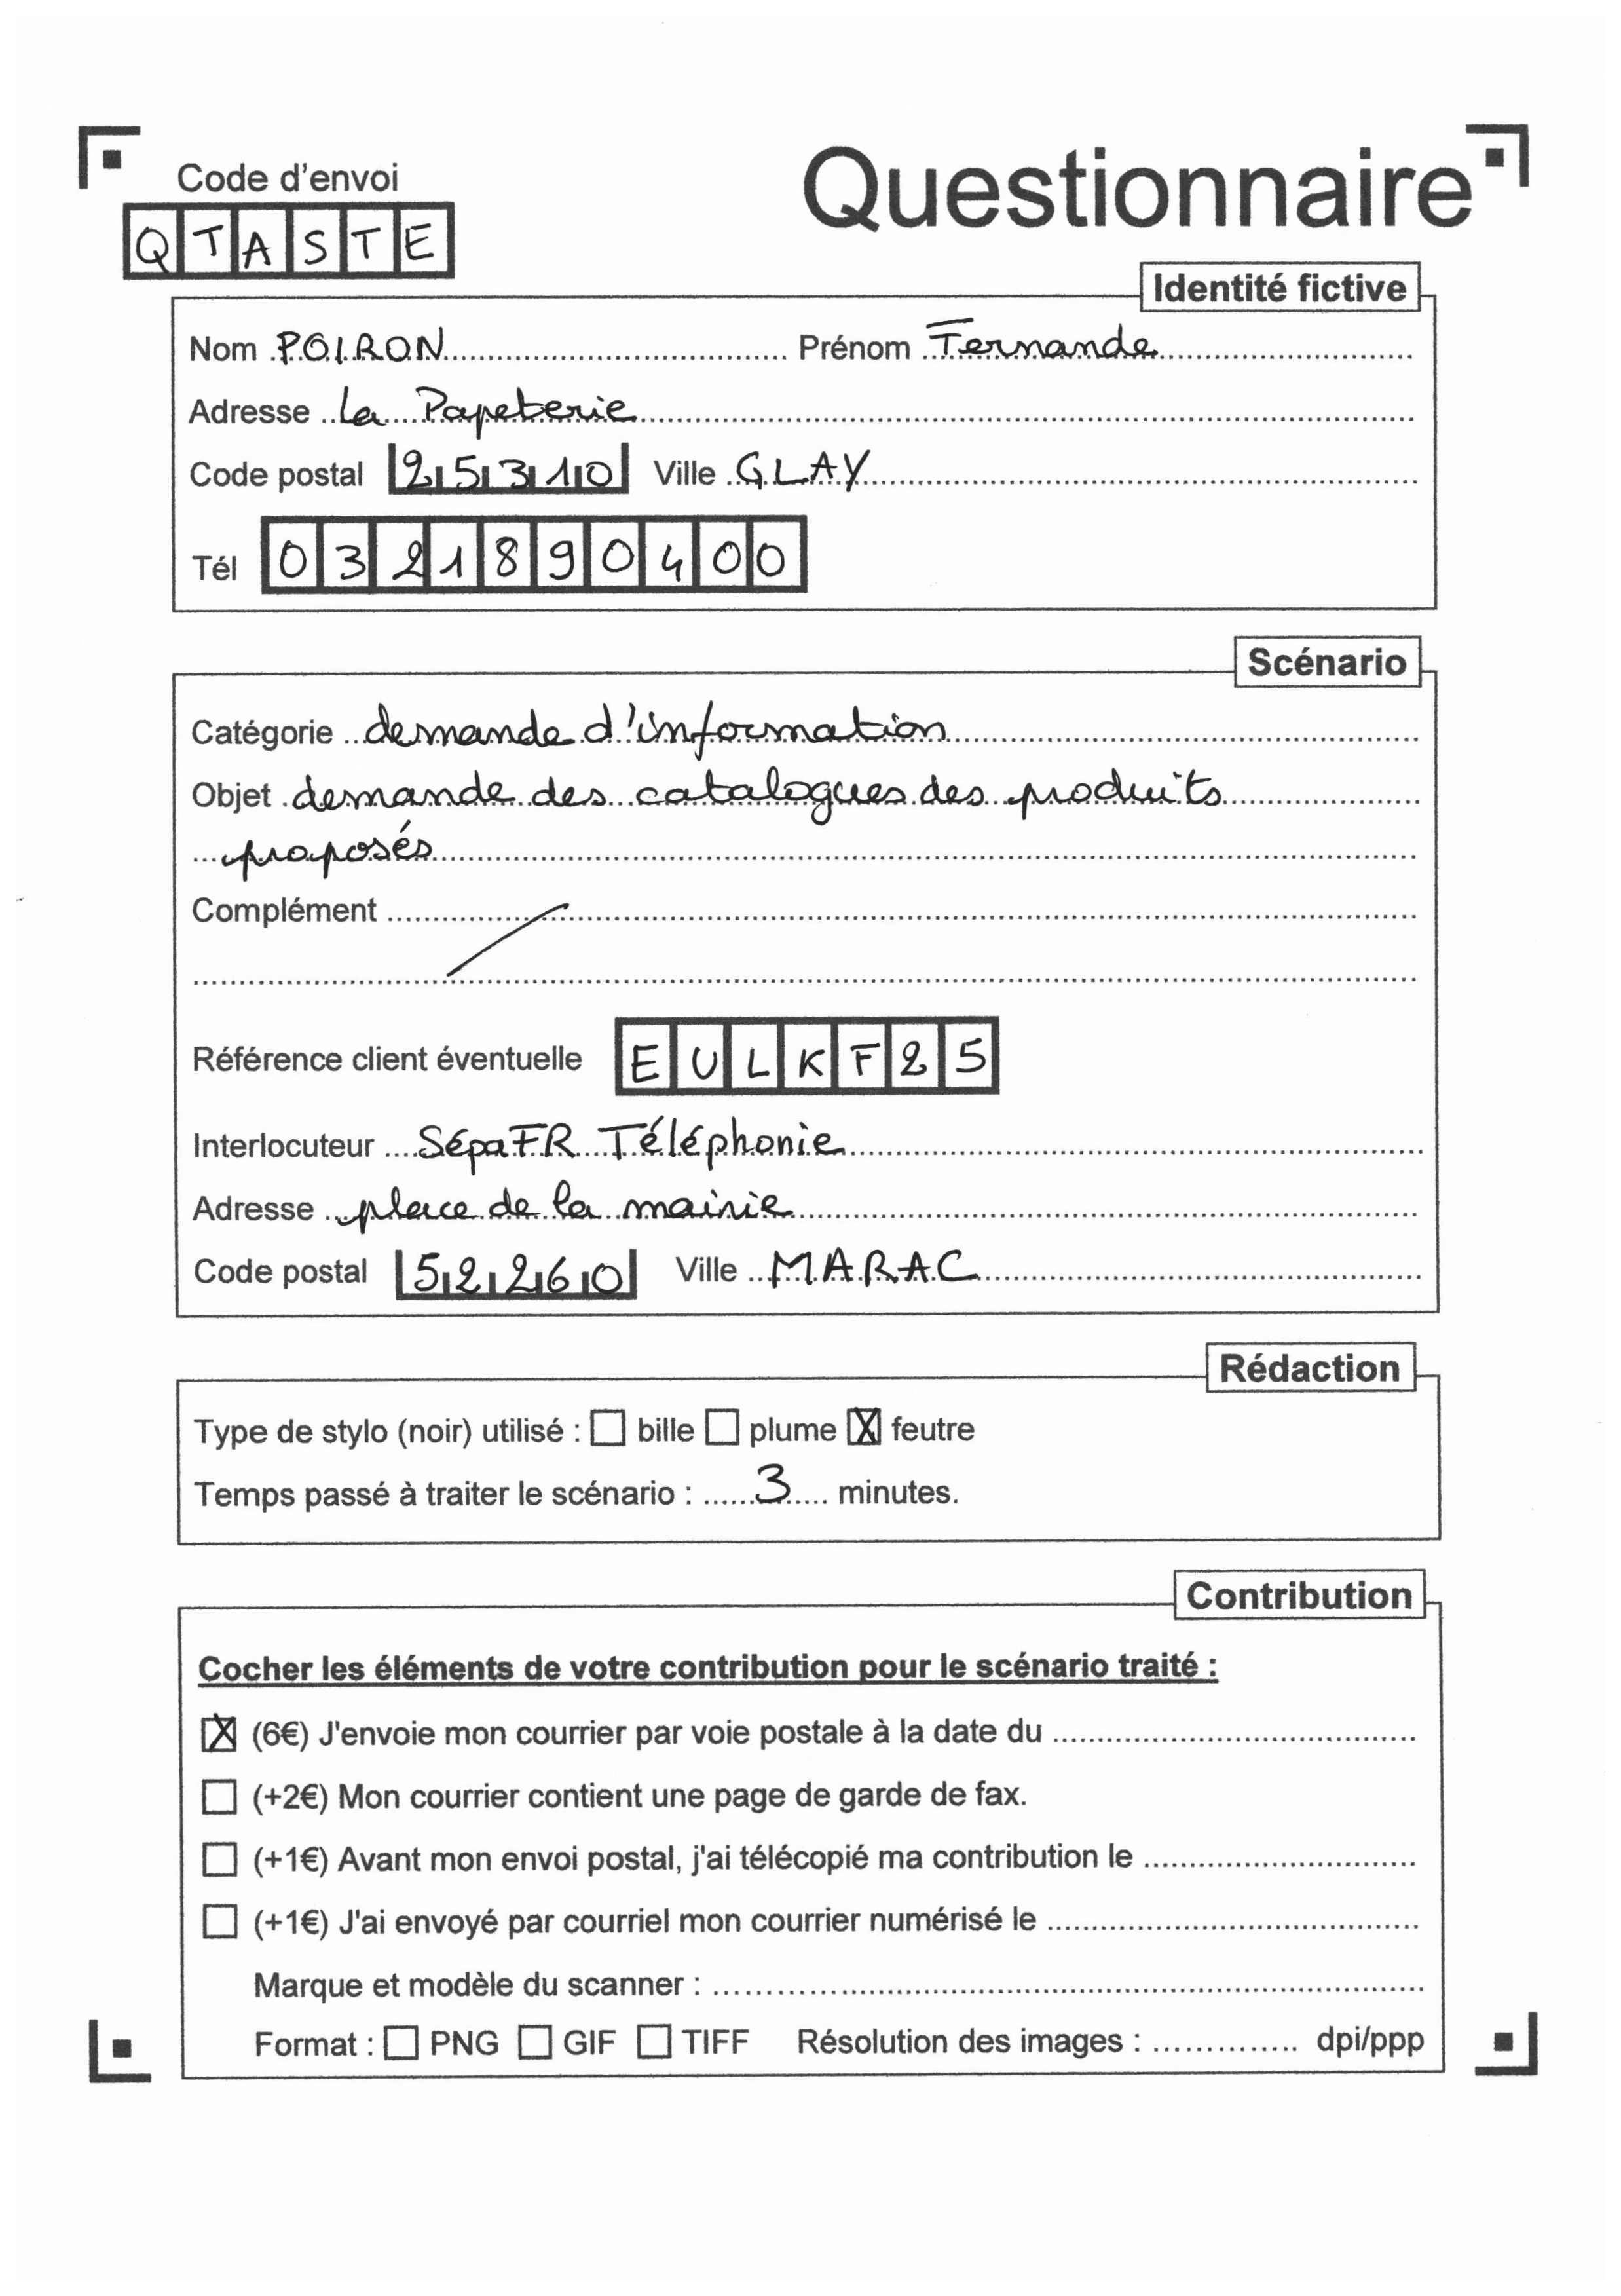 Code d'envoi
QTASTE
Questionnaire
Identité fictive
Nom POIRON Prénom Fernande
Adresse La Papeterie
Code postal 25310 Ville GLAY
Tél 0321890400
Scénario
Catégorie demande d'information
Objet demande des catalogues des produits
proposés
Complément
Référence client éventuelle EULKF25
Interlocuteur SépaFR Téléphonie
Adresse place de la mairie
Code postal 52260 Ville MARAC
Rédaction
Type de stylo (noir) utilisé : ☐ bille ☐ plume ☒ feutre
Temps passé à traiter le scénario : 3 minutes.
Contribution
Cocher les éléments de votre contribution pour le scénario traité :
☒ (6€) J'envoie mon courrier par voie postale à la date du
☐ (+2€) Mon courrier contient une page de garde de fax.
☐ (+1€) Avant mon envoi postal, j'ai télécopié ma contribution le
☐ (+1€) J'ai envoyé par courriel mon courrier numérisé le
Marque et modèle du scanner :
Format : ☐ PNG ☐ GIF ☐ TIFF Résolution des images : dpi/ppp